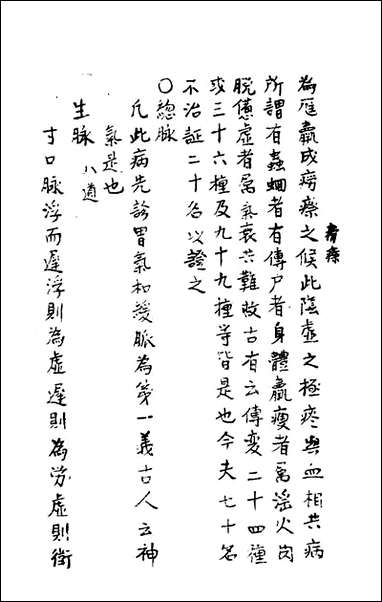 為尫羸成癆瘵之候此陰虛之極痰與血相共病
癆瘵
所謂有蟲蛔者有傳尸者身體羸瘦者屬淫火肉
脫憊虛者屬氣衰共難故古有云傳変二十四種
或三十六種及九十九種等皆是也今夫七十名
不治証二十名以證之
〇總脉
凡此病先診胃氣和緩脈為第一義古人云神
氣是也
生脉 八道
寸口脉浮而遲浮則為虛遲則為勞虛則衛